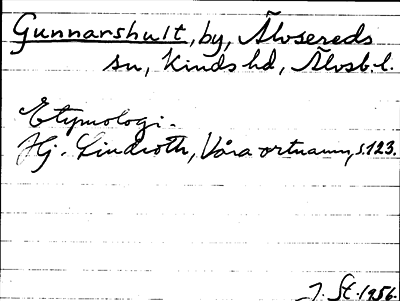 Gunnarshult, by, Älvsereds
sn, Kinds hd, Älvsb. l.
Etymologi.
Hj. Lindroth, Våra ortnamn, s. 123.
J. St. 1956.